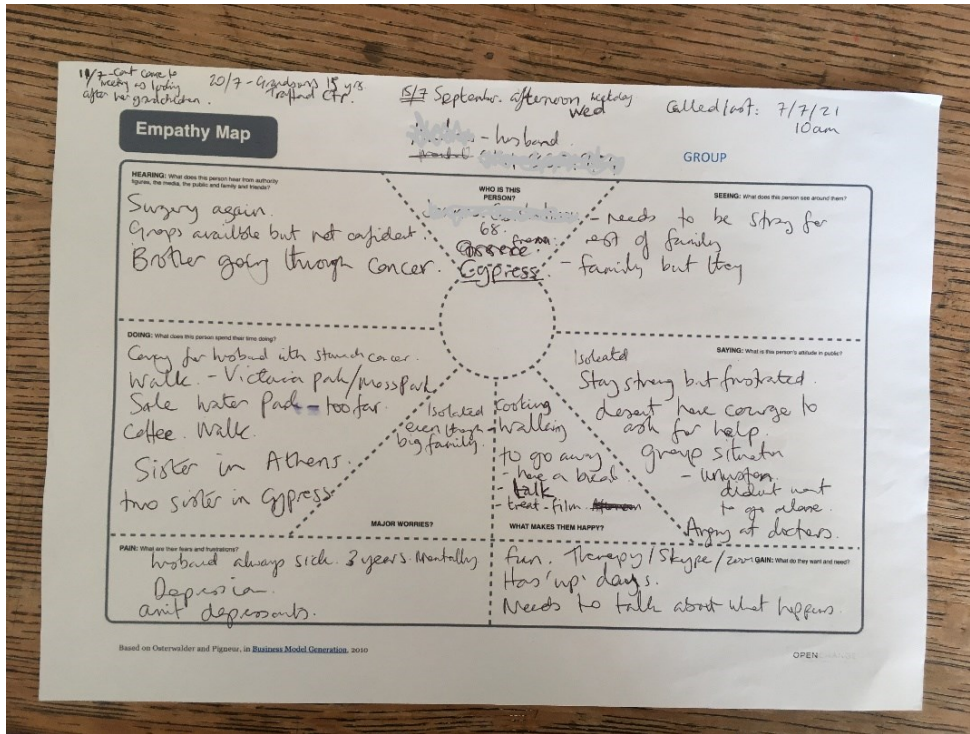 11/7 - Cant come to
meeting as looking
after her grandchildren.
20/7 - Grandsons 15 yrs
Trafford
15/7 September. afternoon weekday
Wed
Called last: 7/7/21
10am
- husband
Empathy Map
GROUP
HEARING: What does this person hear from authority
figures, the media, the public and family and friends?
Surgery again.
Groups availble but not confident.
Brother going through cancer.
WHO IS THIS
PERSON?
68.
from:
Cypress.
SEEING: What does this person see around them?
- needs to be strong for
rest of family
- family but they
DOING: What does this person spend their time doing?
Caring for husband with stomach cancer.
Walk. - Victoria park/mosspark
Sale water park - too far.
Coffee. Walk.
Sister in Athens.
two sister in Cypress
Isolated
even though
big family.
MAJOR WORRIES?
Cooking
- walking
to go away
- have a break
- talk
- treat - film
WHAT MAKES THEM HAPPY?
SAYING: What is this person's attitude in public?
Isolated
Stay strong but frustrated.
doesnt have courage to
ask for help.
group situation
-
didn't want
to go alone.
Angry at doctors.
PAIN: What are their fears and frustrations?
husband always sick. 3 years. Mentally
Depression.
anit depressants.
GAIN: What do they want and need?
fun. Therapy / Skype / zoom
Has 'up' days.
Needs to talk about what happens.
Based on Osterwalder and Pigneur, in Business Model Generation, 2010
OPEN